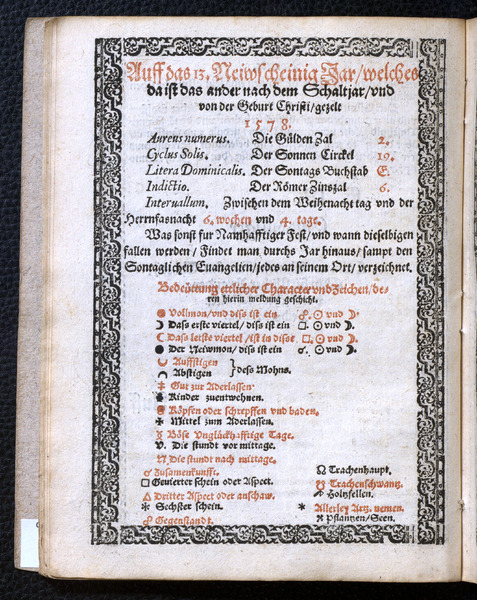 Auff das 13. Neiwscheinig Jar/welches
da ist das ander nach dem Schaltjar/vnd
von der Geburt Christi/gezelt
1578.
Aureus numerus. Die Gülden Zal 2.
Cyclus Solis. Der Sonnen Circkel 19.
Litera Dominicalis. Der Sontags Buchstab E.
Indictio. Der Römer Zinszal 6.
Interuallum. Zwischen dem Weihenacht tag vnd der
Herrnfasnacht 6. wochen vnd 4. tage.
Was sonst fur Namhafftiger Fest/vnd wann dieselbigen
fallen werden/Findet man durchs Jar hinaus/sampt den
Sontaglichen Euangelien/jedes an seinem Ort/verzeichnet.
Bedeuttung etlicher Character vnd Zeichen/de-
ren hierin meldung geschicht.
Vollmon/vnd diss ist ein ☍. ☉ vnd ☽.
☽ Dass erste viertel/diss ist ein □. ☉ vnd ☽.
☾ Dass letste viertel/ist in disem □. ☉ vnd ☽.
● Der Neiwmon/diss ist ein ☌. ☉ vnd ☽.
Auffstigen
Abstigen } dess Mohns.
Gut zur Aderlassen.
Kinder zuentwehnen.
Köpffen oder schrepffen vnd baden.
✠ Mittel zum Aderlassen.
Böse Unglückhafftige Tage.
V. Die stundt vor mittage.
N Die stundt nach mittage.
☌ Zusamenkunfft.
□ Gevierter schein oder Aspect.
△ Dritter Aspect oder anschaw.
✱ Sechster schein.
☍ Gegenstandt.
☊ Trachenhaupt.
☋ Trachenschwantz.
Holtzfellen.
* Allerley Artz. nemen.
Pflantzen/Seen.